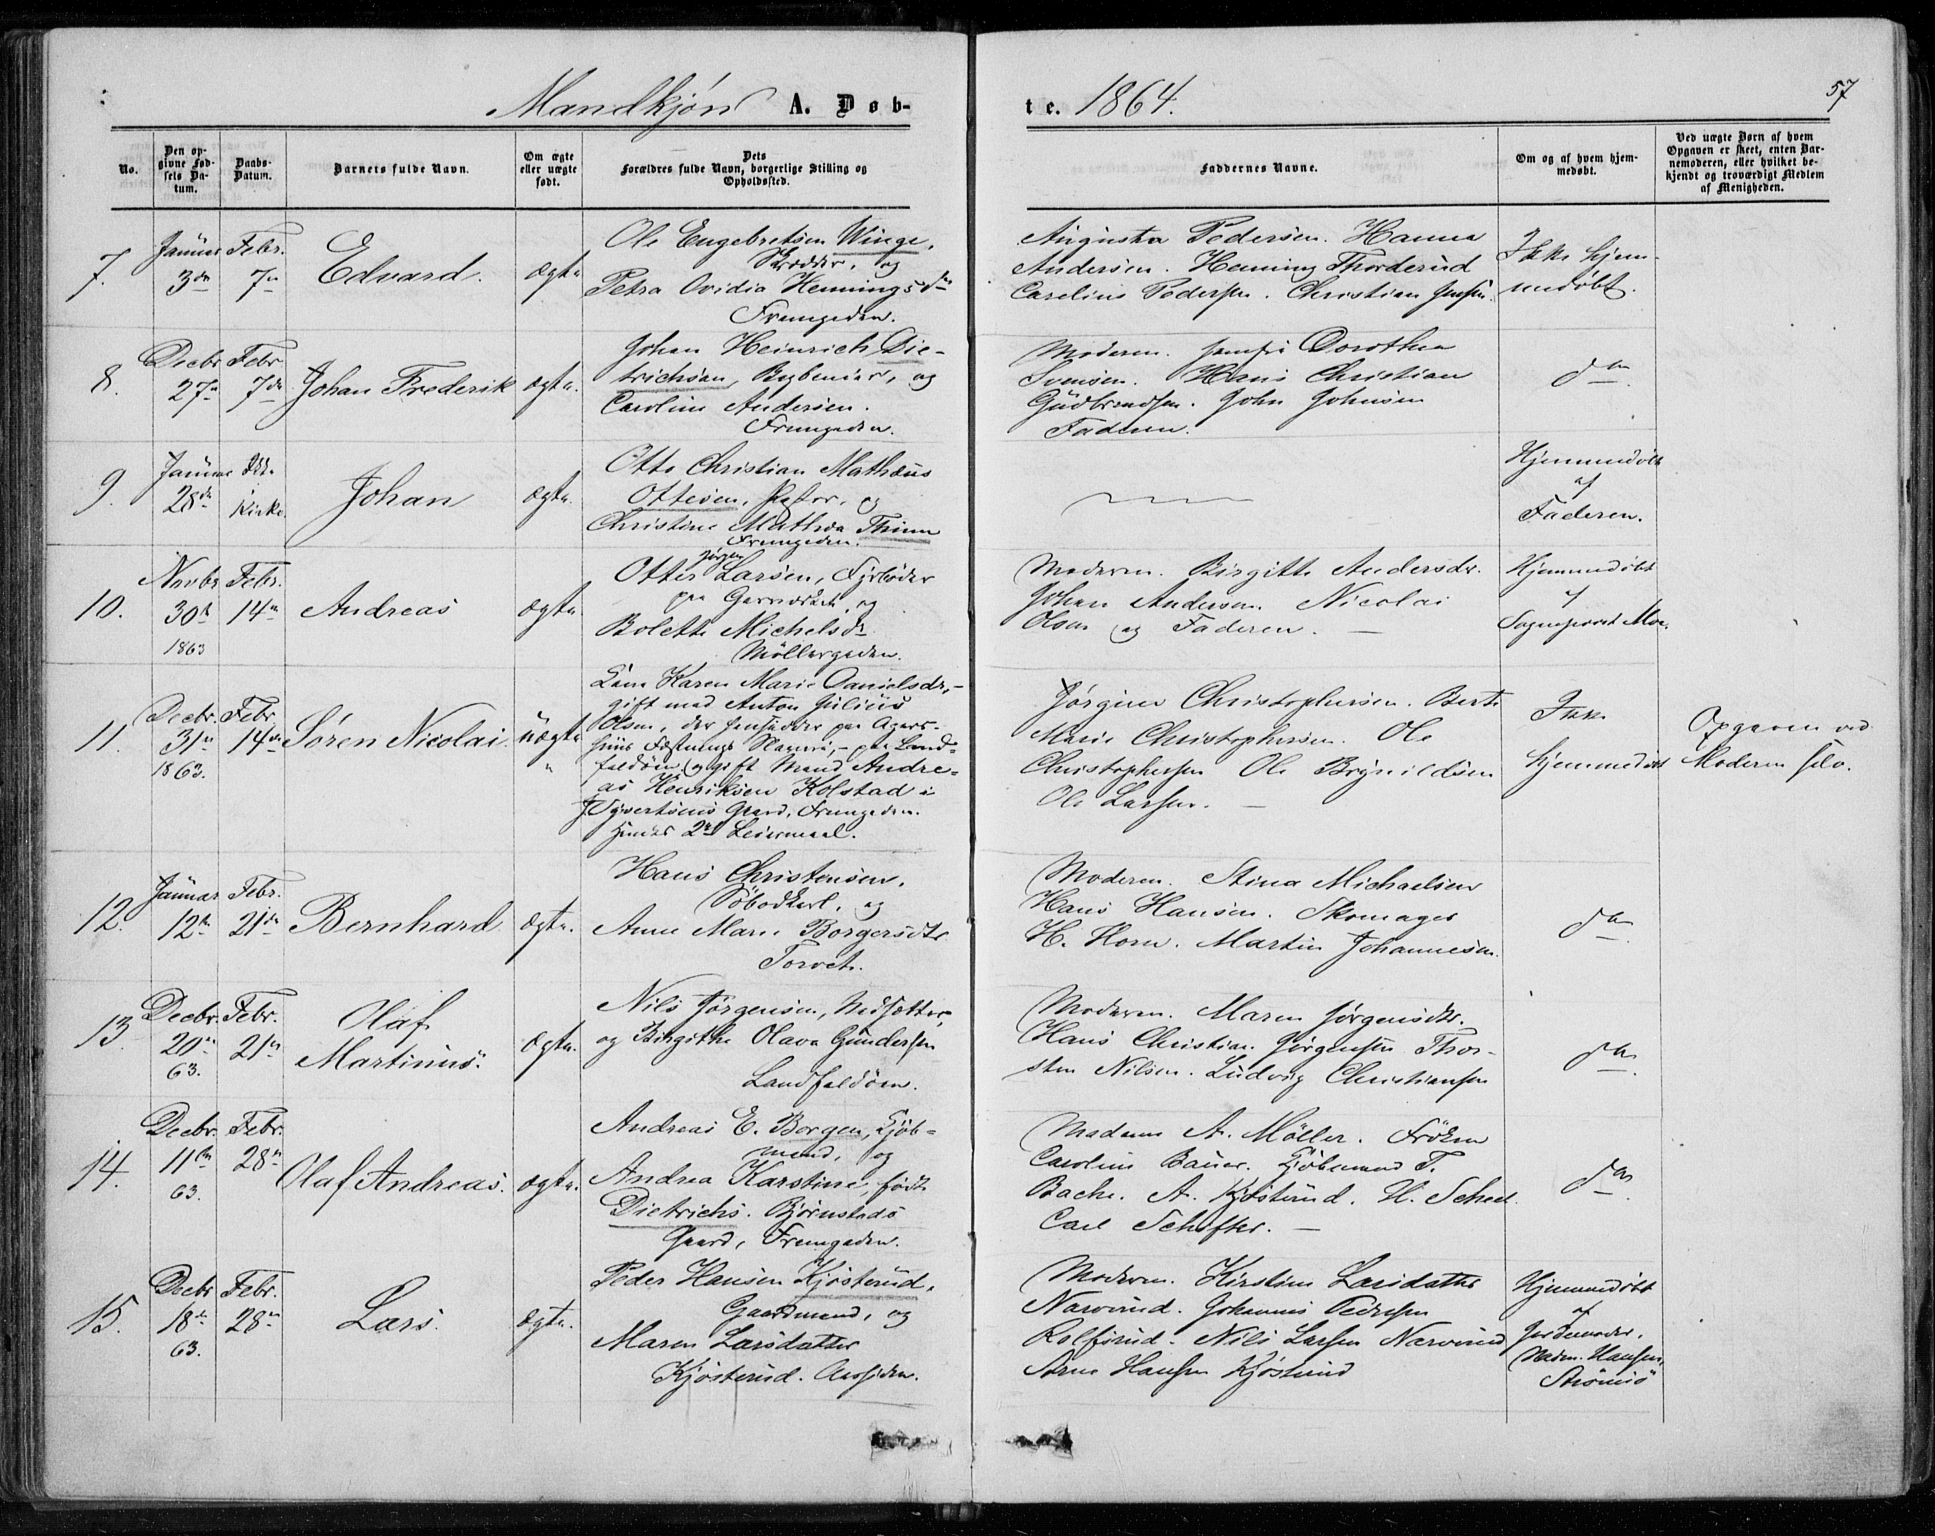 Mandkjøn A. Døb-
te. 1864.
57
No.
Den op-
givne Fød-
sels Da-
tum.
Daabs-
Datum.
Barnets fulde Navn.
Om ægte
eller uægte
født.
Dets
Forældres fulde Navn, borgerlige Stilling og
Opholdssted.
Faddernes Navne.
Om og af hvem hjem-
medøbt.
Ved uægte Børn af hvem
Opgaven er skeet, enten Bar-
nemoderen, eller hvilket be-
kjendt og troværdigt Medlem
af Menigheden.
7.
Januar
3die
Febr.
7de
Edvard.
ægte
Ole Engebretsen Winge,
Skrædder, og
Petra Ovidia Henningsdtr
Fremgaden.
Augusta Pedersen. Hanna
Andersen. Henning Thorderud
Carelius Pedersen. Christian Jensen.
Ikke hjem-
medøbt.
8.
Decbr
27de
Febr.
7de
Johan Frederik
ægte.
Johan Heinrich Die-
trichsen, Bogbinder, og
Caroline Andersen.
Fremgaden.
Moderen. Jomfru Dorothea
Svensen. Hans Christian
Gudbrandsen. John Johnsen
Faderen.
do
9.
Januar
28de
Ikke
i Kirke.
Johan
ægte.
Otto Christian Mathæus
Ottesen, Pastor, og
Christine Mathea Thinn
Fremgaden.
Hjemmedøbt
af
Faderen.
10.
Novbr
30te
1863
Febr.
14de
Andreas
ægte.
Jørgen
Otter Larsen, Fyrbøder
paa Gasværket, og
Bolette Michelsdr
Møllergaden.
Moderen. Birgitte Andersdr.
Johan Andersen. Nicolai
Olsen og Faderen. —
Hjemmedøbt
af
Sognepræst Moe.
11.
Decbr.
31te
1863.
Febr.
14de
Søren Nicolai.
uægte
Karen Marie Danielsdr,
gift med Anton Julius
Olsen, der hensidder paa Agers-
huus Fæstnings Slaveri, – paa Land-
faldøen og gift Mand Andre-
as Henriksen Kolstad i
Syvertsens Gaard, Fremgaden.
Hendes 2det Leiermaal.
Jørgine Christophersen. Berte
Marie Christophersen. Ole
Christophersen Ole Brynildsen
Ole Larsen. —
Ikke
hjemmedøbt
Opgaven ved
Moderen selv.
12.
Januar
12te
Febr.
21de
Bernhard
ægte.
Hans Christensen,
og
Anne Marie Borgersdtr
Torvet.
Moderen. Stina Michaelsen
Hans Hansen. Skomager
H. Horn. Martin Johannesen.
do
13
Decbr.
20de
63.
Febr.
21de
Olaf
Martinius.
ægte.
Nils Jørgensen, Nedsætter,
og Birgithe Olava Gundersen
Landfaldøen.
Moderen. Maren Jørgensdtr.
Hans Christian Jørgensen Thor-
sten Nilsen. Ludvig Christiansen
do
14.
Decbr.
11te
63.
Febr.
28de
Olaf Andreas.
ægte.
Andreas E. Borgen, Kjøb-
mand, og
Andrea Karstine, født
Dietrichs. Bjørnstads
Gaard, Fremgaden.
Madame A. Møller. Frøken
Caroline Bauer. Kjøbmand T.
Bache. A. Kjøsterud. H. Scheel
Carl Schefter. —
do
15.
Decbr
18de
63.
Febr.
28de
Lars.
ægte.
Peder Hansen Kjøsterud,
Gaardmand, og
Maren Larsdatter
Kjøsterud. Aassiden.
Moderen. Kirstine Larsdatter
Narverud. Johannes Pedersen
Rolfsrud. Nils Larsen Narverud
Arne Hansen Kjøsterud
Hjemmedøbt
af
Jordemoder,
Madm. Hansen,
Strømsø